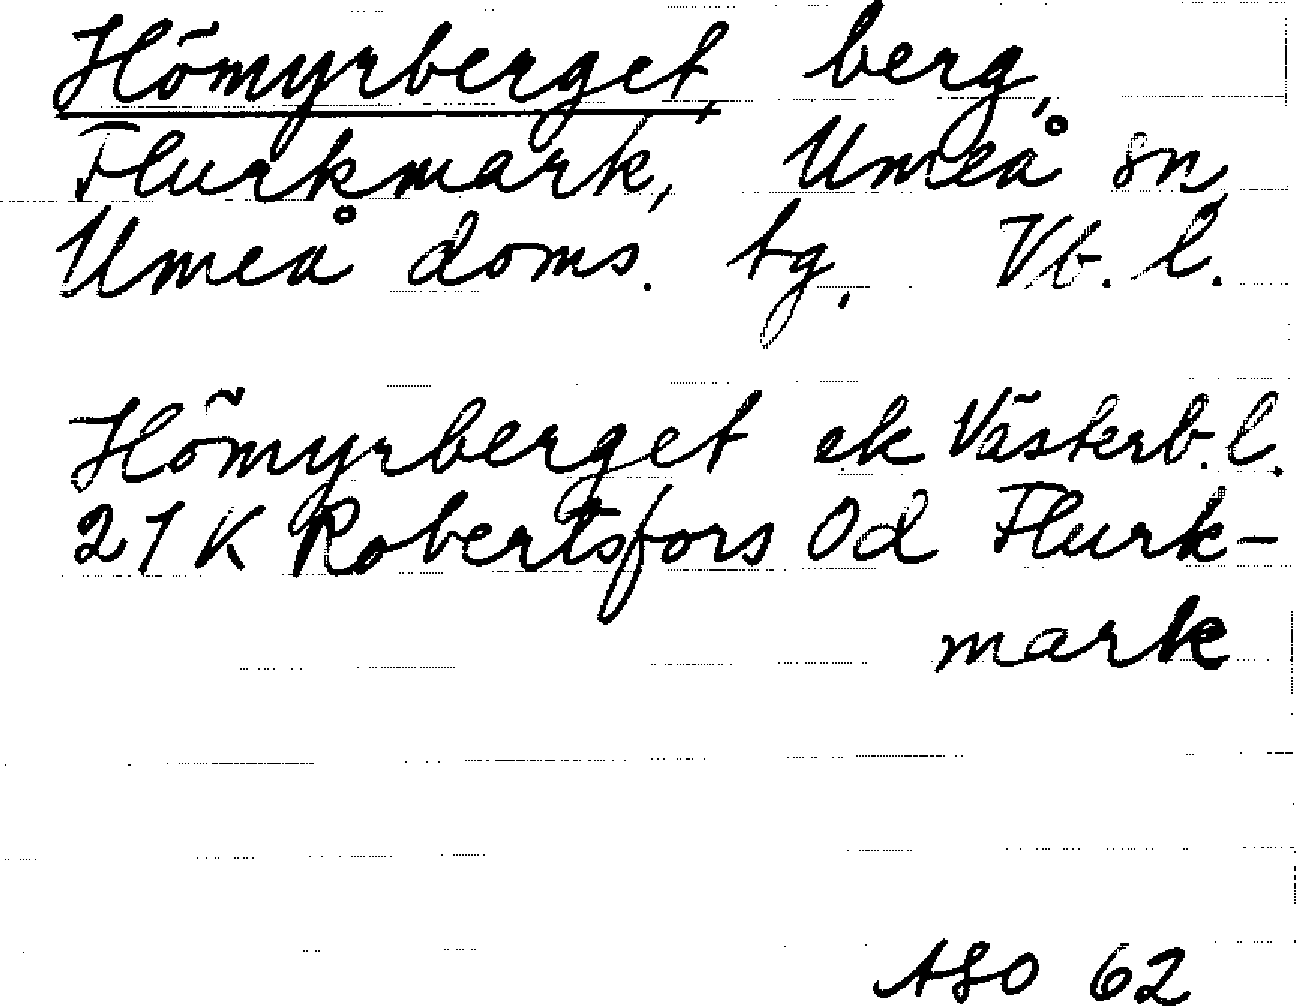 Hömyrberget, berg,
Flurkmark, Umeå sn,
Umeå doms. tg. Vb. l.
Hömyrberget ek Västerb. l.
21 K Robertsfors Od Flurk-
mark
ASO 62